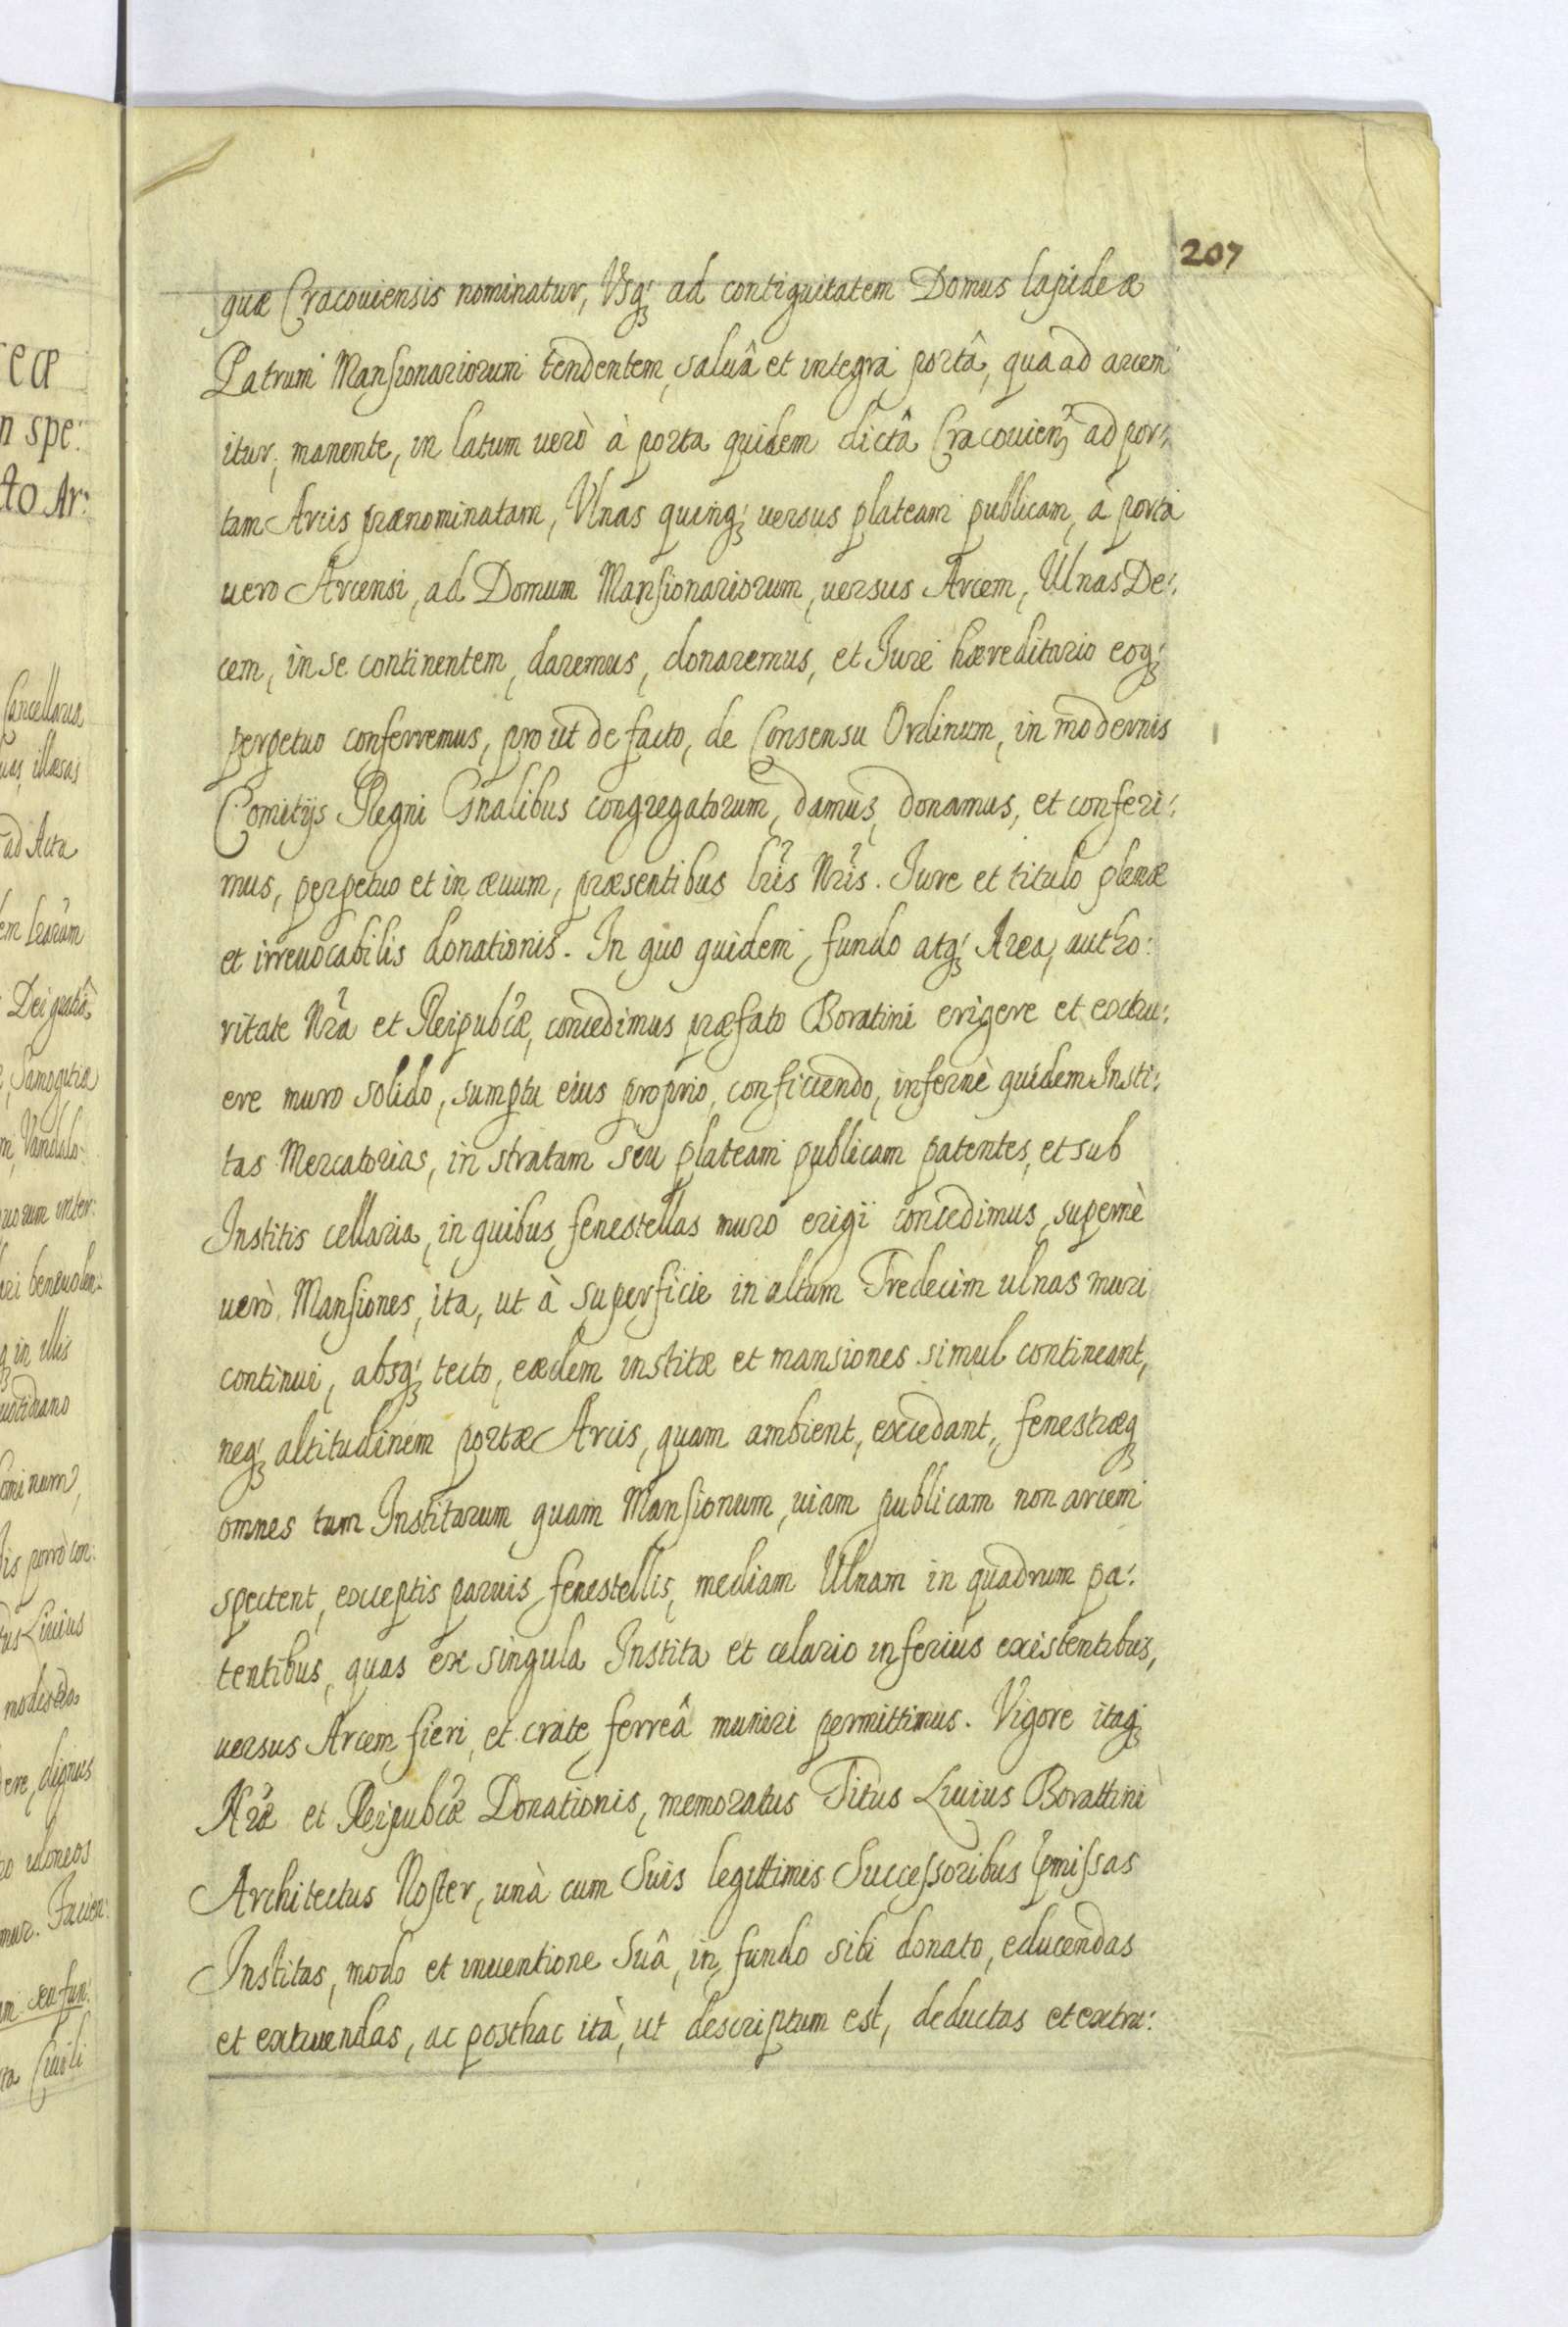 207
quæ Cracouiensis nominatur, Vsq; ad contiguitatem Domus lapideæ
Patrum Mansionariorum tendentem, saluâ et integrâ portâ, qua ad arcem
itur, manente, in latum uerò à porta quidem dictâ Cracouien: ad por:
tam Arcis prænominatam, Vlnas quinq; uersus plateam publicam, à porta
uero Arcensi, ad Domum Mansionariorum, uersus Arcem, Ulnas De:
cem, in se continentem, daremus, donaremus, et Jure hæreditario eoq;
perpetuo conferremus, pro ut de facto, de Consensu Ordinum, in modernis
Comitijs Regni Gnalibus congregatorum, damus, donamus, et conferi:
mus, perpetuo et in æuum, præsentibus lris Nris. Jure et titulo plenæ
et irreuocabilis donationis. In quo quidem fundo atq; Area, autho:
ritate Nra et Reipubcæ, concedimus præfato Boratini erigere et extru:
ere muro solido, sumptu eius proprio, conficiendo, infernè quidem Insti:
tas Mercatorias, in stratam seu plateam publicam patentes, et sub
Institis cellaria, in quibus fenestellas muro erigi concedimus, supernè
uerò Mansiones, ita, ut à superficie in altum Tredecim ulnas muri
continui, absq; tecto, eædem institæ et mansiones simul contineant,
neq; altitudinem portæ Arcis, quam ambient, excedant, fenestræq
omnes tam Institarum quam Mansionum, uiam publicam non arcem
spectent, exceptis paruis fenestellis, mediam Ulnam in quadrum pa:
tentibus, quas ex singula Instita et celario inferius existentibus,
uersus Arcem fieri, et crate ferreâ muniri permittimus. Vigore itaq;
Nræ et Reipubcæ Donationis, memoratus Titus Liuius Borattini
Architectus Noster, unà cum Suis legittimis Successoribus pmissas
Institas, modo et inuentione Suâ, in fundo sibi donato, educendas
et extruendas, ac posthac ità, ut descriptum est, deductas et extru:
eæ
n spe:
to Ar:
Cancellaria
uas, illæsas
ad Acta
Dei gratiâ
Samogitiæ
m, Vandalo:
uorum inter:
q in illis
uotidiano
ominum,
is porrò con:
tus Liuius
ere, dignus
ro idoneos
mur. Facien:
m seu fun:
ta Ciuili